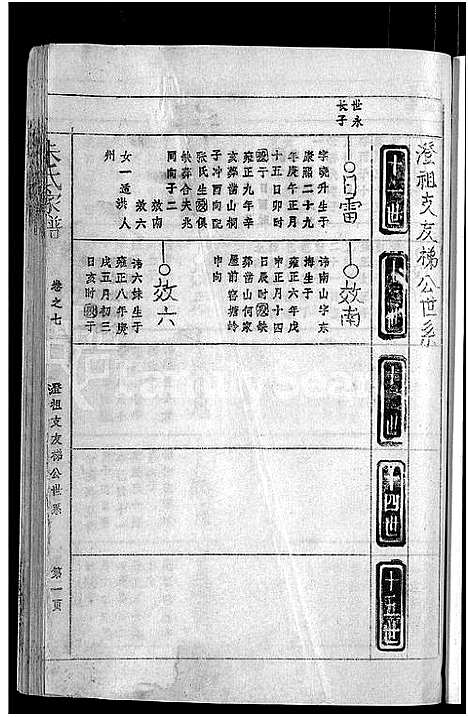 澄祖支友梯公世系
十一世
十二世
十三世
十四世
十五世
世永
长子
日雷
字晓升生于
康熙二十九
年庚午正月
十五日卯时
殁于
雍正九年辛
亥葬凿山桐
子冲西向配
张氏生殁俱
缺葬合夫兆
同向子二
效南
效六
女一适洪人
州
效南
讳南山字东
海生于
雍正六年戊
申正月十四
日辰时殁缺
葬凿山何家
屋前窑塘岭
申向
效六
讳六妹生于
雍正八年庚
戌五月初三
日亥时殁于
朱氏家谱
卷之七
澄祖支友梯公世系
第一页